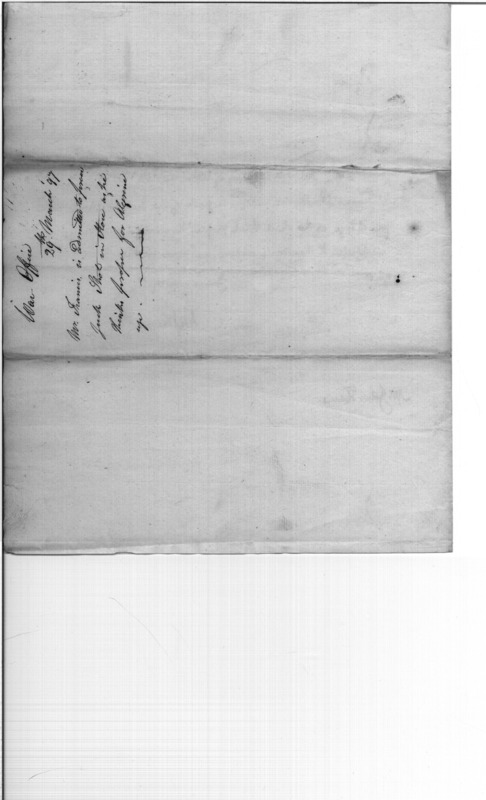 War Office
29th March '97
Mr. Francis is directed to prove
such Shot in Store as he
thinks proper for Algerine